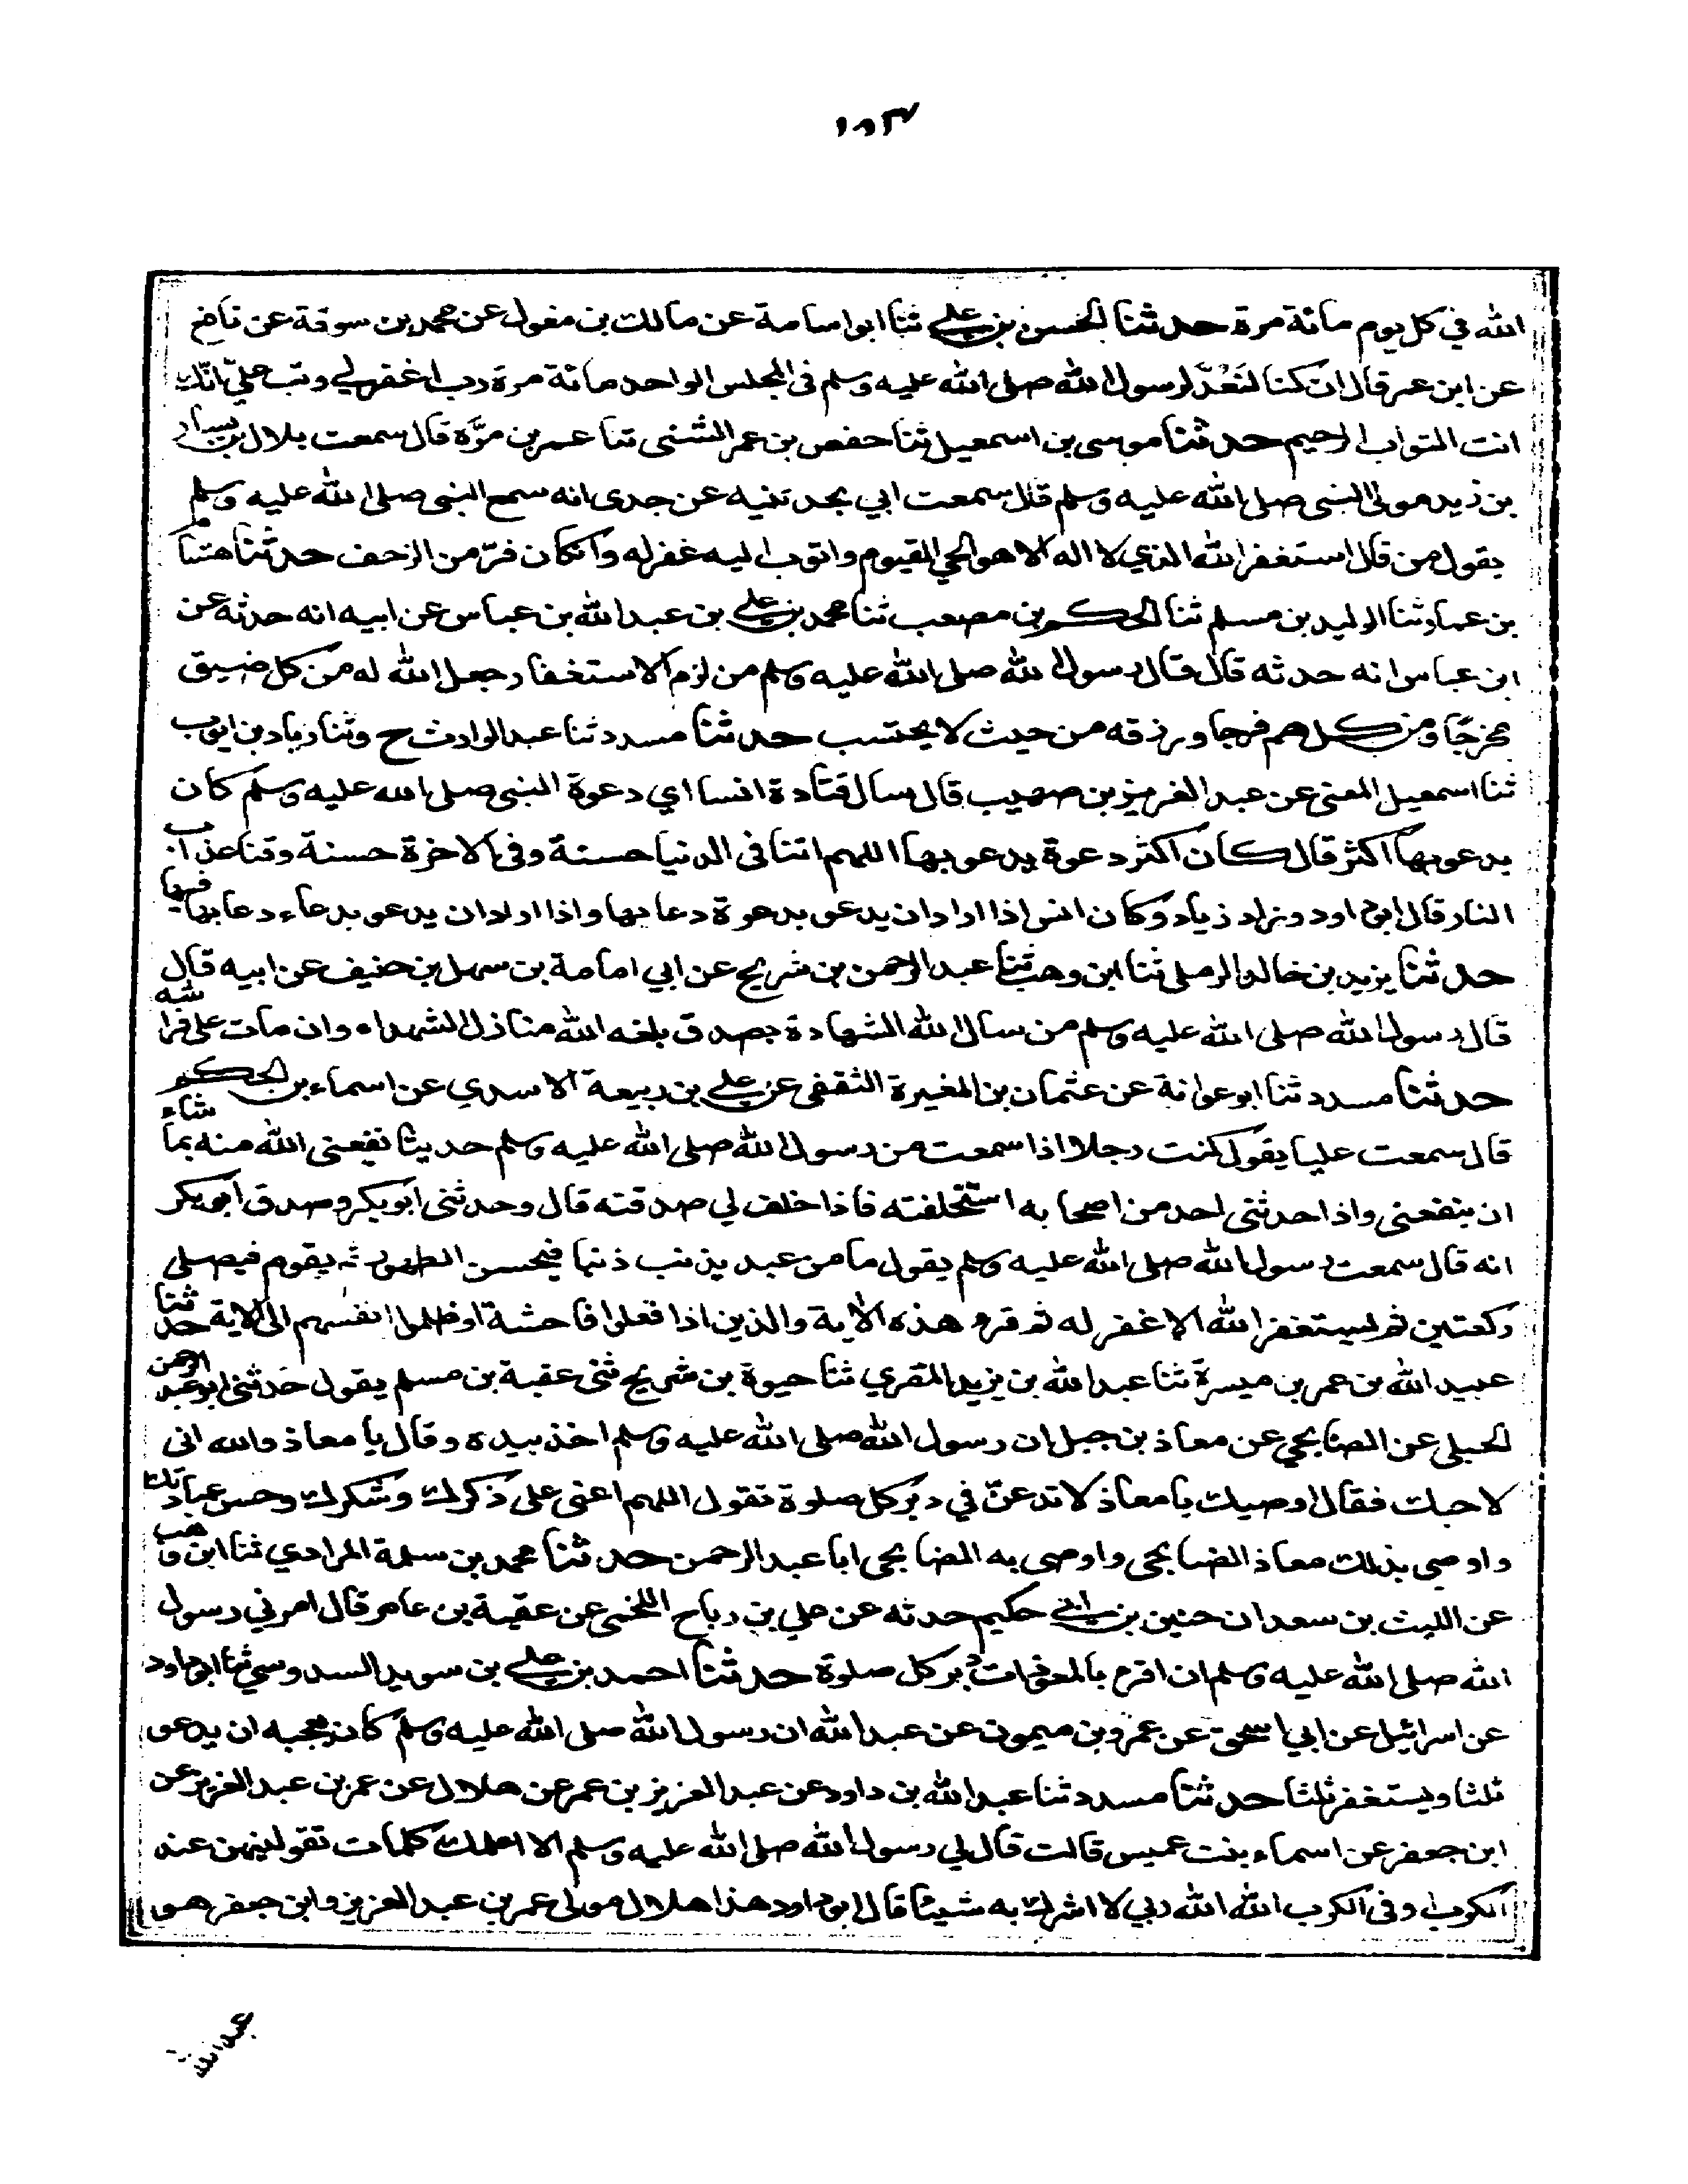 ١٥٣
الله في كل يوم مائة مرة حدثنا الحسن بن علي ثنا ابو اسامة عن مالك بن مغول عن محمد بن سوقة عن نافع
عن ابن عمر قال ان كنا لنَعُدّ لرسول الله صلى الله عليه وسلم فى المجلس الواحد مائة مرة رب اغفر لي وتب عليّ انّك
انت التواب الرحيم حدثنا موسى بن اسمعيل ثنا حفص بن عمر الشنى ثنا عمر بن مرّة قال سمعت بلال بن يسار
بن زيد مولى النبى صلى الله عليه وسلم قال سمعت ابي يحدثنيه عن جدى انه سمع النبى صلى الله عليه وسلم
يقول من قال استغفر الله الذي لا اله الا هو الحي القيوم واتوب اليه غفر له وانكان فرّ من الزحف حدثنا هشام
بن عمار ثنا الوليد بن مسلم ثنا الحكم بن مصعب ثنا محمد بن علي بن عبد الله بن عباس عن ابيه انه حدثه عن
ابن عباس انه حدثه قال قال رسول الله صلى الله عليه وسلم من لزم الاستغفار جعل الله له من كل ضيق
مخرجًا ومن كل هم فرجا ورزقه من حيث لا يحتسب حدثنا مسدد ثنا عبد الوارث ح وثنا زياد بن ايوب
ثنا اسمعيل المعنى عن عبد العزيز بن صهيب قال سال قتادة انسا اي دعوة النبى صلى الله عليه وسلم كان
يدعو بها اكثر قال كان اكثر دعوة يدعو بها اللهم اتنا فى الدنيا حسنة وفى الاخرة حسنة وقنا عذاب
النار قال ابو داود وزاد زياد وكان انس اذا اراد ان يدعو بدعوة دعا بها واذا اراد ان يدعو بدعاء دعا بها فيها
حدثنا يزيد بن خالد الرملى ثنا ابن وهب ثنا عبد الرحمن بن شريح عن ابي امامة بن سهل بن حنيف عن ابيه قال
قال رسول الله صلى الله عليه وسلم من سال الله الشهادة بصدق بلغه الله منازل الشهداء وان مات على فراشه
حدثنا مسدد ثنا ابو عوانة عن عثمان بن المغيرة الثقفى عن علي بن ربيعة الاسدي عن اسماء بن الحكم
قال سمعت عليا يقول كنت رجلا اذا سمعت من رسول الله صلى الله عليه وسلم حديثا نفعنى الله منه بما شاء
ان ينفعنى واذا حدثنى احد من اصحابه استحلفته فاذا حلف لي صدقته قال وحدثنى ابو بكر وصدق ابو بكر
انه قال سمعت رسول الله صلى الله عليه وسلم يقول ما من عبد يذنب ذنبا فيحسن الطهور ثم يقوم فيصلى
ركعتين ثم ليستغفر الله الا غفر له ثم قرء هذه الاية والذين اذا فعلوا فاحشة او ظلموا انفسهم الى الاية حدثنا
عبيد الله بن عمر بن ميسرة ثنا عبد الله بن يزيد المقري ثنا حيوة بن شريح ثنى عقبة بن مسلم يقول حدثنى ابو عبد الرحمن
الحبلى عن الصنابحي عن معاذ بن جبل ان رسول الله صلى الله عليه وسلم اخذ بيده وقال يا معاذ والله انى
لاحبك فقال اوصيك يا معاذ لا تدعنّ في دبر كل صلوة تقول اللهم اعنى على ذكرك وشكرك وحسن عبادتك
واوصى بذلك معاذ الصنابحى واوصى به الصنابحى ابا عبد الرحمن حدثنا محمد بن سلمة المرادي ثنا ابن وهب
عن الليث بن سعد ان حنين بن ابي حكيم حدثه عن علي بن رباح اللخمى عن عقبة بن عامر قال امرني رسول
الله صلى الله عليه وسلم ان اقرء بالمعوذات دبر كل صلوة حدثنا احمد بن علي بن سويد السدوسي ثنا ابو داود
عن اسرائيل عن ابي اسحق عن عمرو بن ميمون عن عبد الله ان رسول الله صلى الله عليه وسلم كان يعجبه ان يدعو
ثلثا ويستغفر ثلثا حدثنا مسدد ثنا عبد الله بن داود عن عبد العزيز بن عمر عن هلال عن عمر بن عبد العزيز عن
ابن جعفر عن اسماء بنت عميس قالت قال لي رسول الله صلى الله عليه وسلم الا اعلمك كلمات تقولينهن عند
الكرب او فى الكرب الله الله ربي لا اشرك به شيئا قال ابو داود هذا هلال مولى عمر بن عبد العزيز وابن جعفر هو
عبد الله